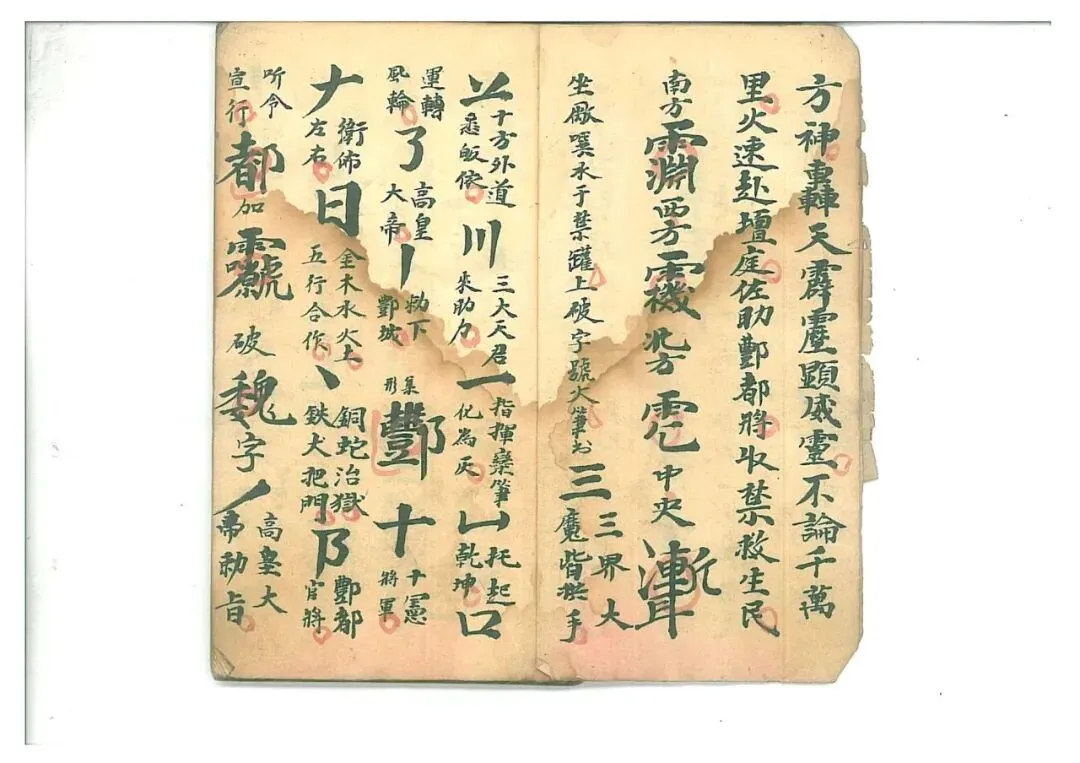 方神轟天霹靂顯威靈不論千萬
里火速赴壇庭佐助酆都將收禁救生民
南方 西方 北方 中央
坐 于禁罐上破字號火筆书三三界大魔皆拱手
䒑十方外道悉皈依川三大天君來助力一指揮藥筆化為灰凵托起乾坤口
運轉風輪了高皇大帝丨勅下酆城集形酆十十憲將軍
𠂇衛佈左右日金木水火土五行合作丶銅蛇治獄鉄犬把門阝酆都官將
听令宣行都加 破魏字丿高皇大帝勅旨